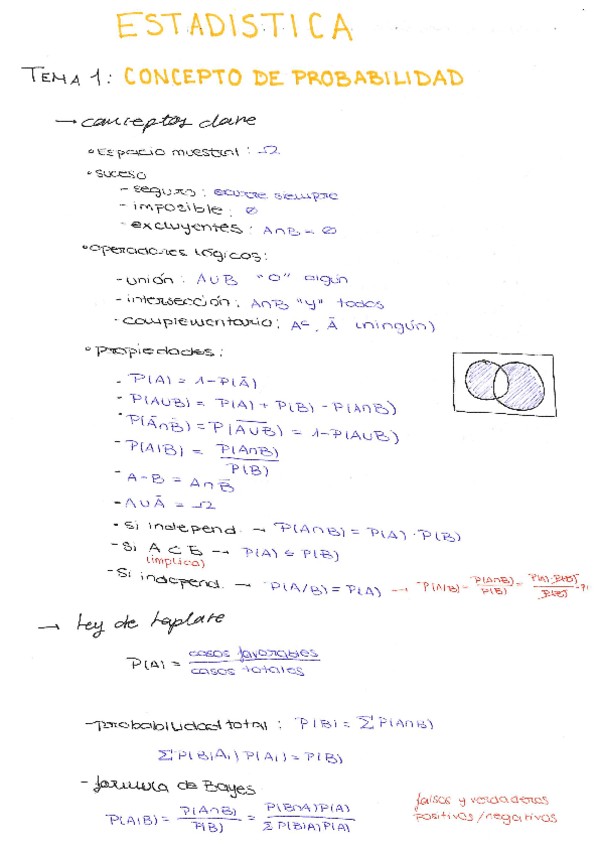 ESTADISTICA
TEMA 1: CONCEPTO DE PROBABILIDAD
→ conceptos clave
• Espacio muestral: Ω
• suceso
- seguro: ocurre siempre
- imposible: ∅
- excluyentes: A∩B = ∅
• operadores lógicos:
- unión: A∪B "O" algún
- intersección: A∩B "y" todos
- complementario: Aᶜ, Ā (ningún)
• propiedades:
- P(A) = 1-P(Ā)
- P(A∪B) = P(A) + P(B) - P(A∩B)
- P(Ā∩B̄) = P(A̅∪̅B̅) = 1-P(A∪B)
- P(A|B) = P(A∩B) / P(B)
- A-B = A∩B̄
- A∪Ā = Ω
- Si independ. → P(A∩B) = P(A)·P(B)
- Si A ⊂ B → P(A) ≤ P(B)
(implica)
- Si independ. → P(A/B) = P(A) → P(A/B) = P(A∩B) / P(B) = P(A)·P(B) / P(B)
→ Ley de Laplace
P(A) = casos favorables / casos totales
- probabilidad total: P(B) = Σ P(A∩B)
Σ P(B|Aᵢ) P(Aᵢ) = P(B)
- formula de Bayes
P(A|B) = P(A∩B) / P(B) = P(B∩A)P(A) / Σ P(B|A)P(A)
falsos y verdaderos
positivos/negativos